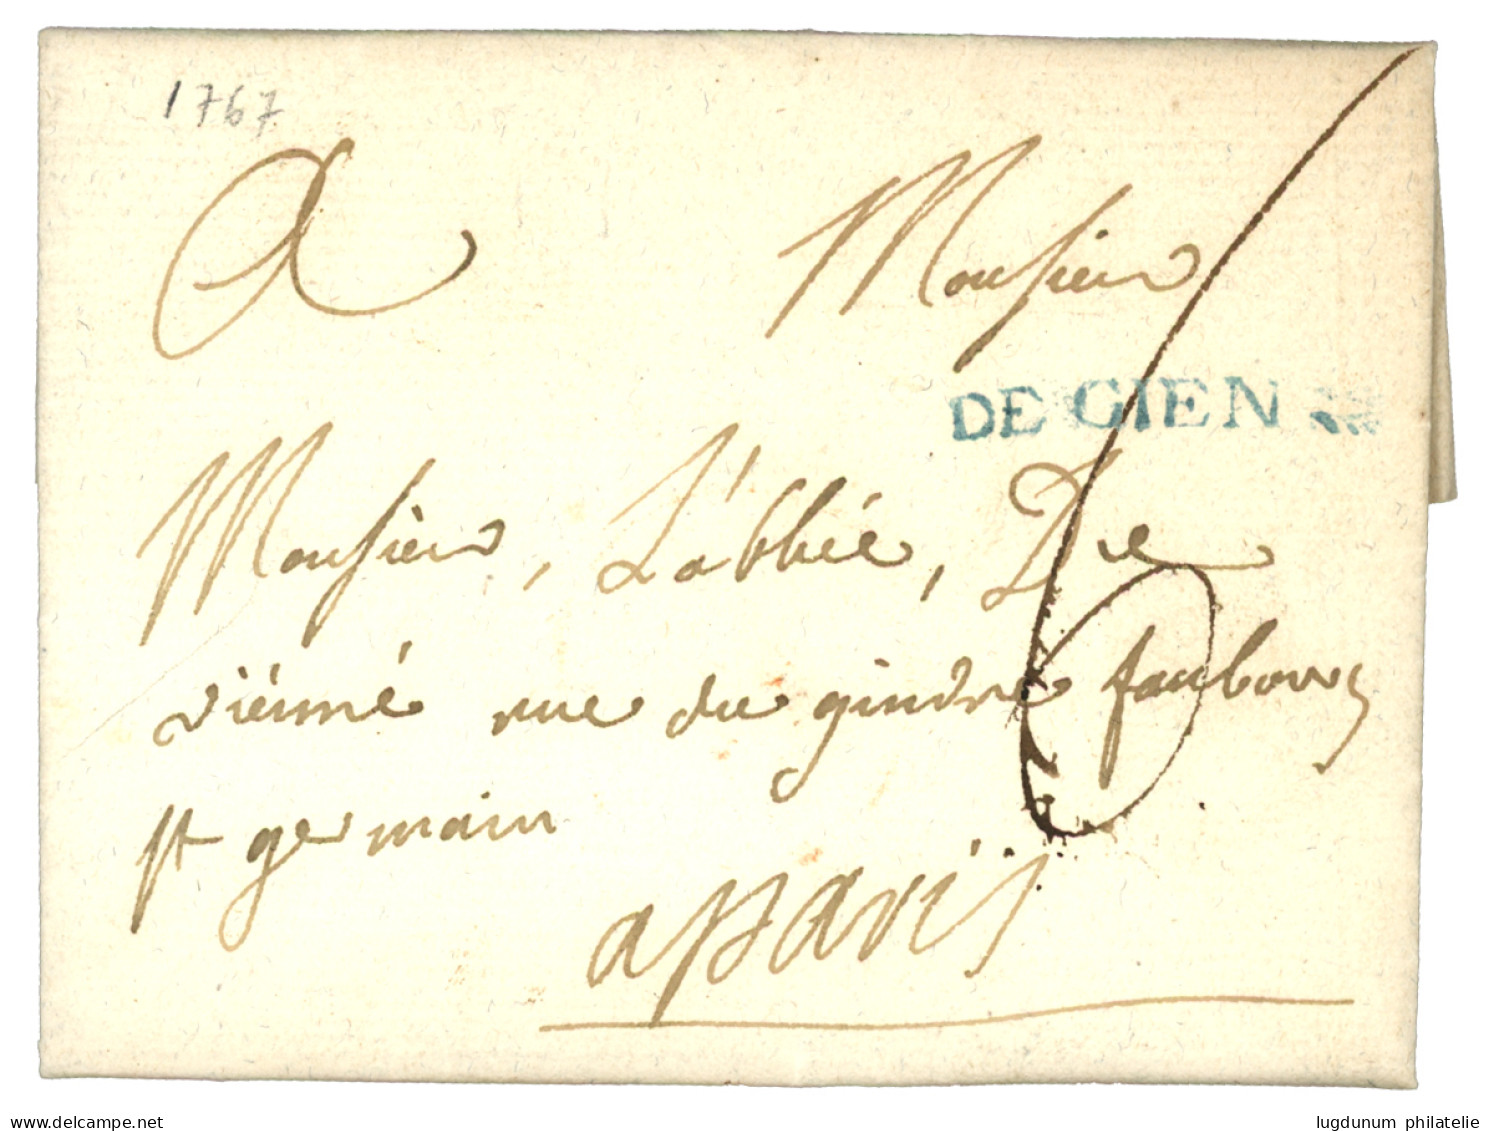 1767
A Monsieur
DE GIEN
Monsieur, L'abbée, De
viénné rue du gindre faubourg
st germain
a paris
6
delcampe.net
lugdunum philatelie